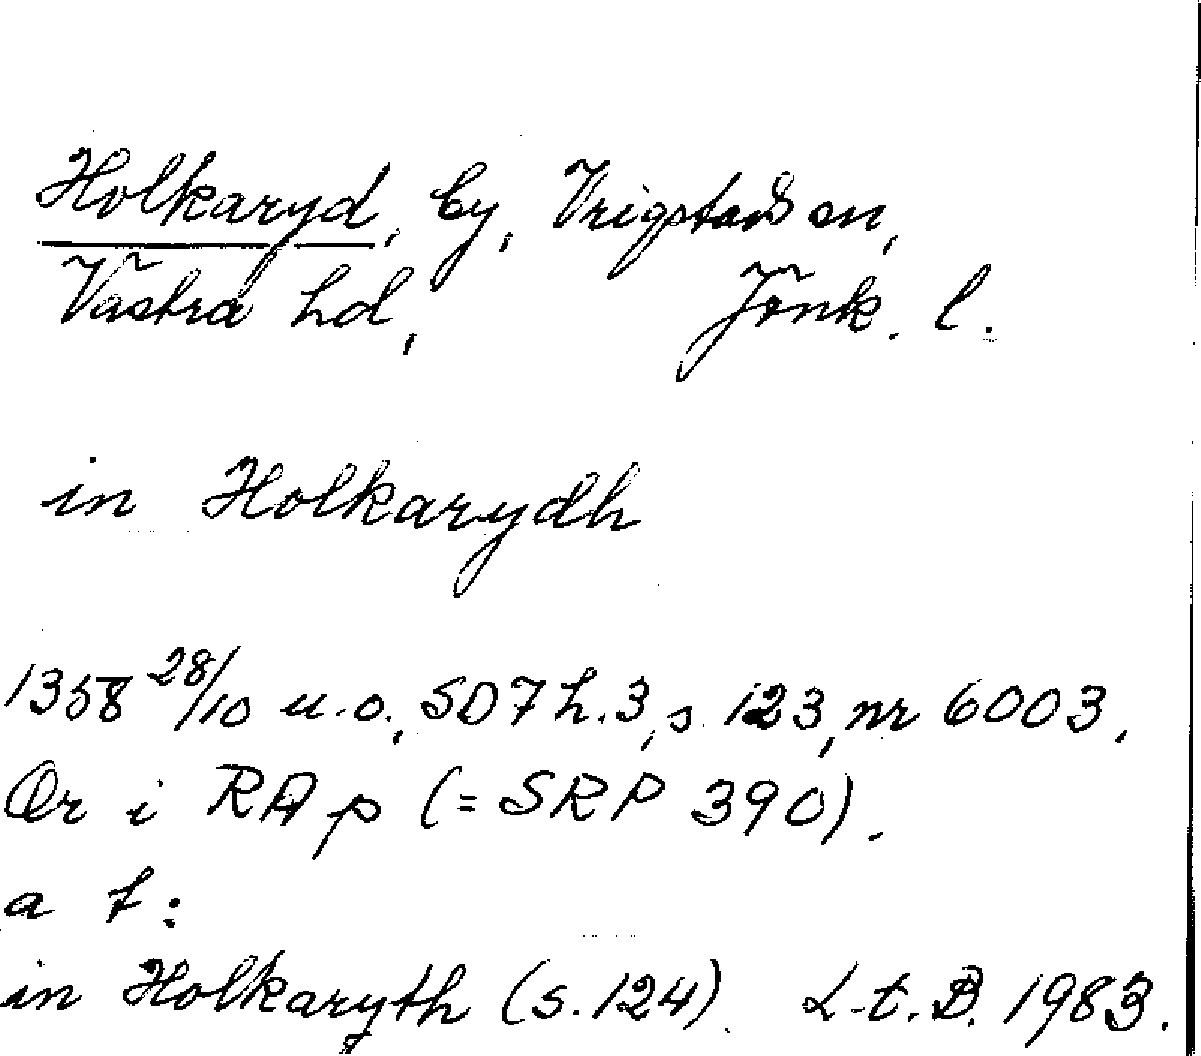 Holkaryd, by, Vrigstads sn,
Västra hd, Jönk. l.
in Holkarydh
1358 28/10 u.o., SD7 h.3, s. 123, nr 6003.
Or i RAp (= SRP 390).
a t:
in Holkaryth (s. 124). L-t. B. 1983.